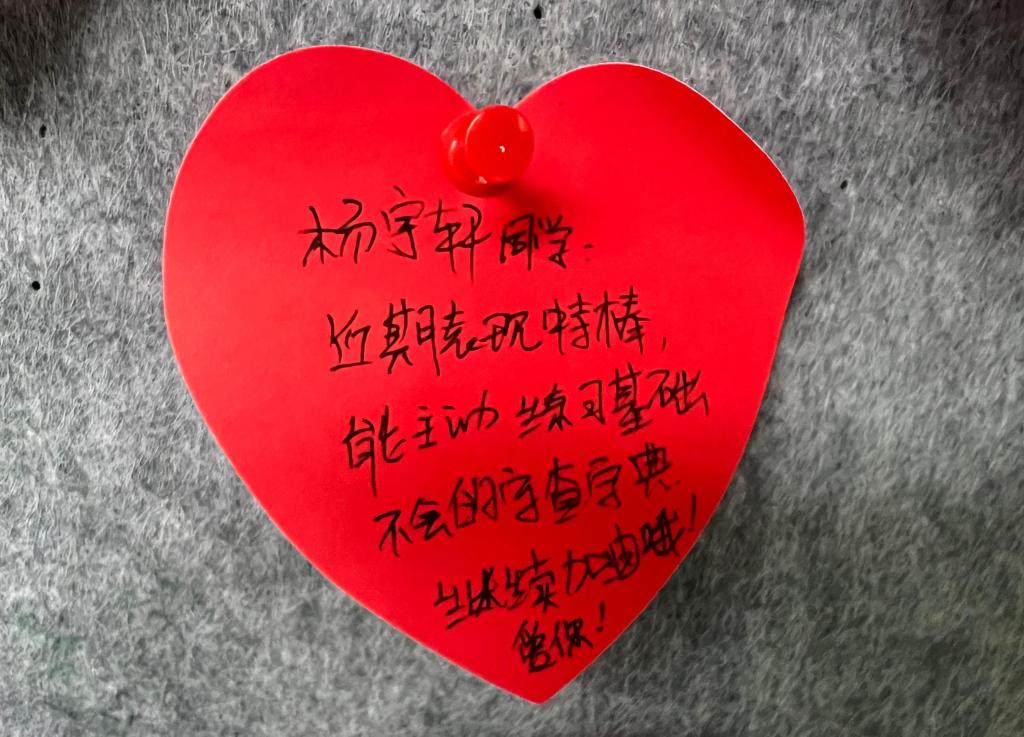 杨宇轩同学：
近期表现特棒，
能主动练习基础
不会的字查字典.
继续加油哦！
您！